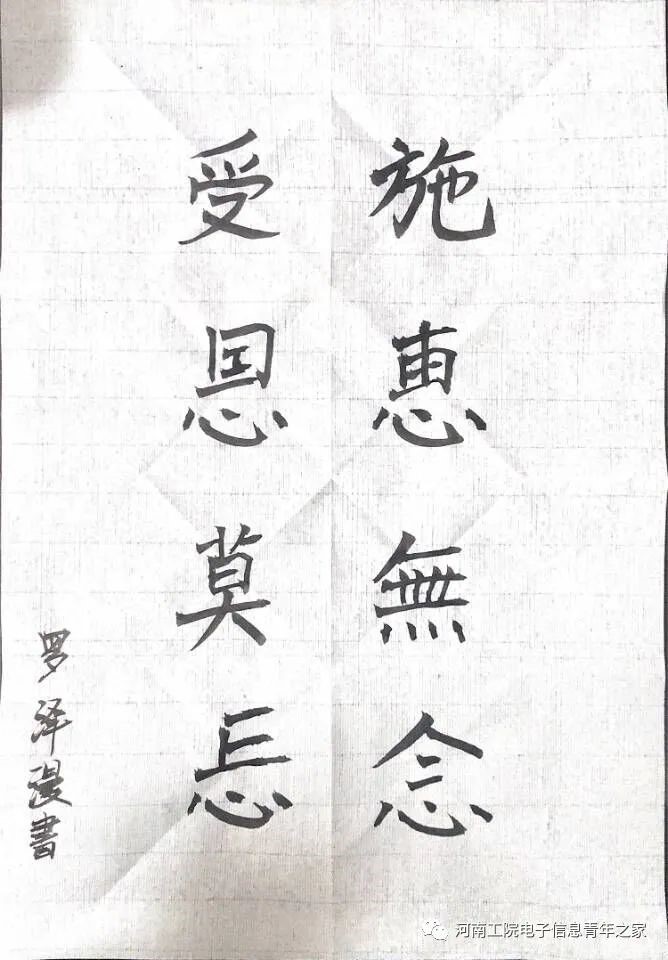 施惠無念
受恩莫忘
罗泽漫書
河南工院电子信息青年之家